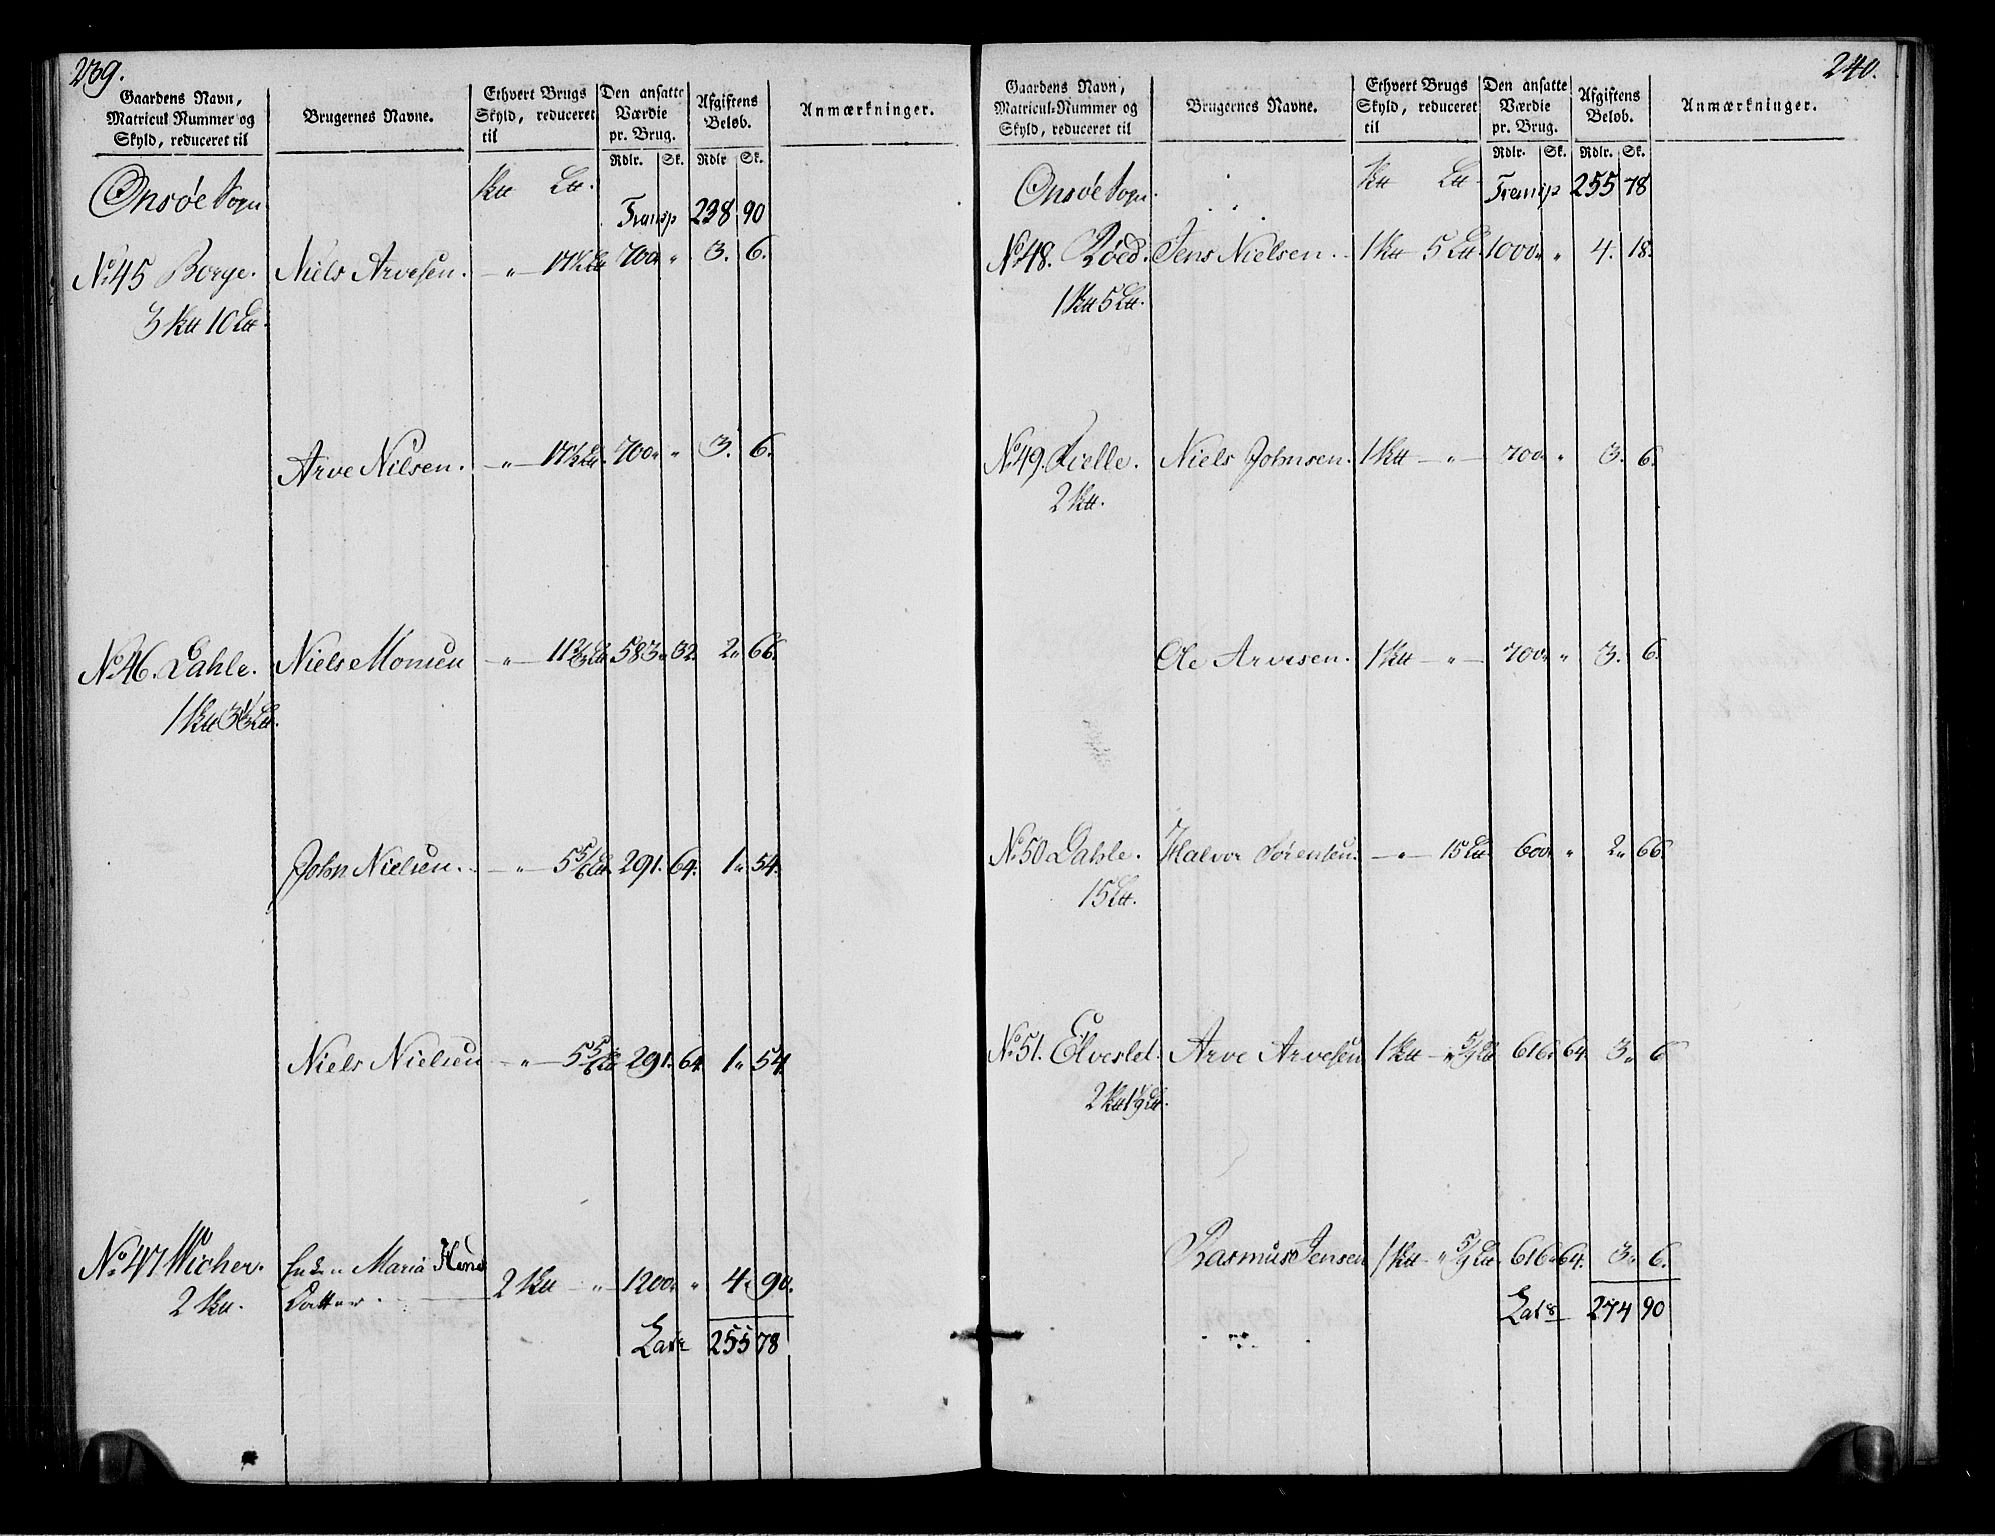 239.
Gaardens Navn, Matricul Nummer og Skyld, reduceret til | Brugernes Navne. | Ethvert Brugs Skyld, reduceret til | Den ansatte Værdie pr. Brug. Rdlr. Sk. | Afgiftens Beløb. Rdlr Sk. | Anmærkninger.
Onsøe Sogn
Transp 238 90
No 45 Borge. Niels Arvesen. - „ - 17½ 700 „ 3. 6.
3 10
Arve Nilsen. - „ - 17½ 700 „ 3. 6.
No 46. Dahle. Niels Monsen - „ - 11⅔ 583 32. 2 66.
1 3⅓
John Nielsen. - „ - 5 5/6 291. 64. 1 54.
Niels Nielsen - „ - 5 5/6 291. 64. 1 54
No 47 Wicher. Maria Hans
2 Datter 2 „ 1200 „ 4 90.
Lats 255 78
240.
Gaardens Navn, Matricul-Nummer og Skyld, reduceret til | Brugernes Navne. | Ethvert Brugs Skyld, reduceret til | Den ansatte Værdie pr. Brug. Rdlr. Sk. | Afgiftens Beløb. Rdlr. Sk. | Anmærkninger.
Onsøe Sogn.
Transp 255 78
No 48. Röed. Jens Nielsen. 1 5 1000 „ 4. 18.
1 5
No 49. Kielle. Niels Johnsen. 1 - „ - 700 „ 3. 6.
2
Ole Arvesen. 1 - „ - 700 „ 3. 6.
No 50 Dahle. Halvor Sørensen. - „ - 15 600 „ 2 66.
15
No 51. Elveslet. Arve Arvesen 1 „ 5/9 616 64. 3 6
2 1 1/9
Rasmus Jensen 1 „ 5/9 616 64. 3 6.
Lats 274 90